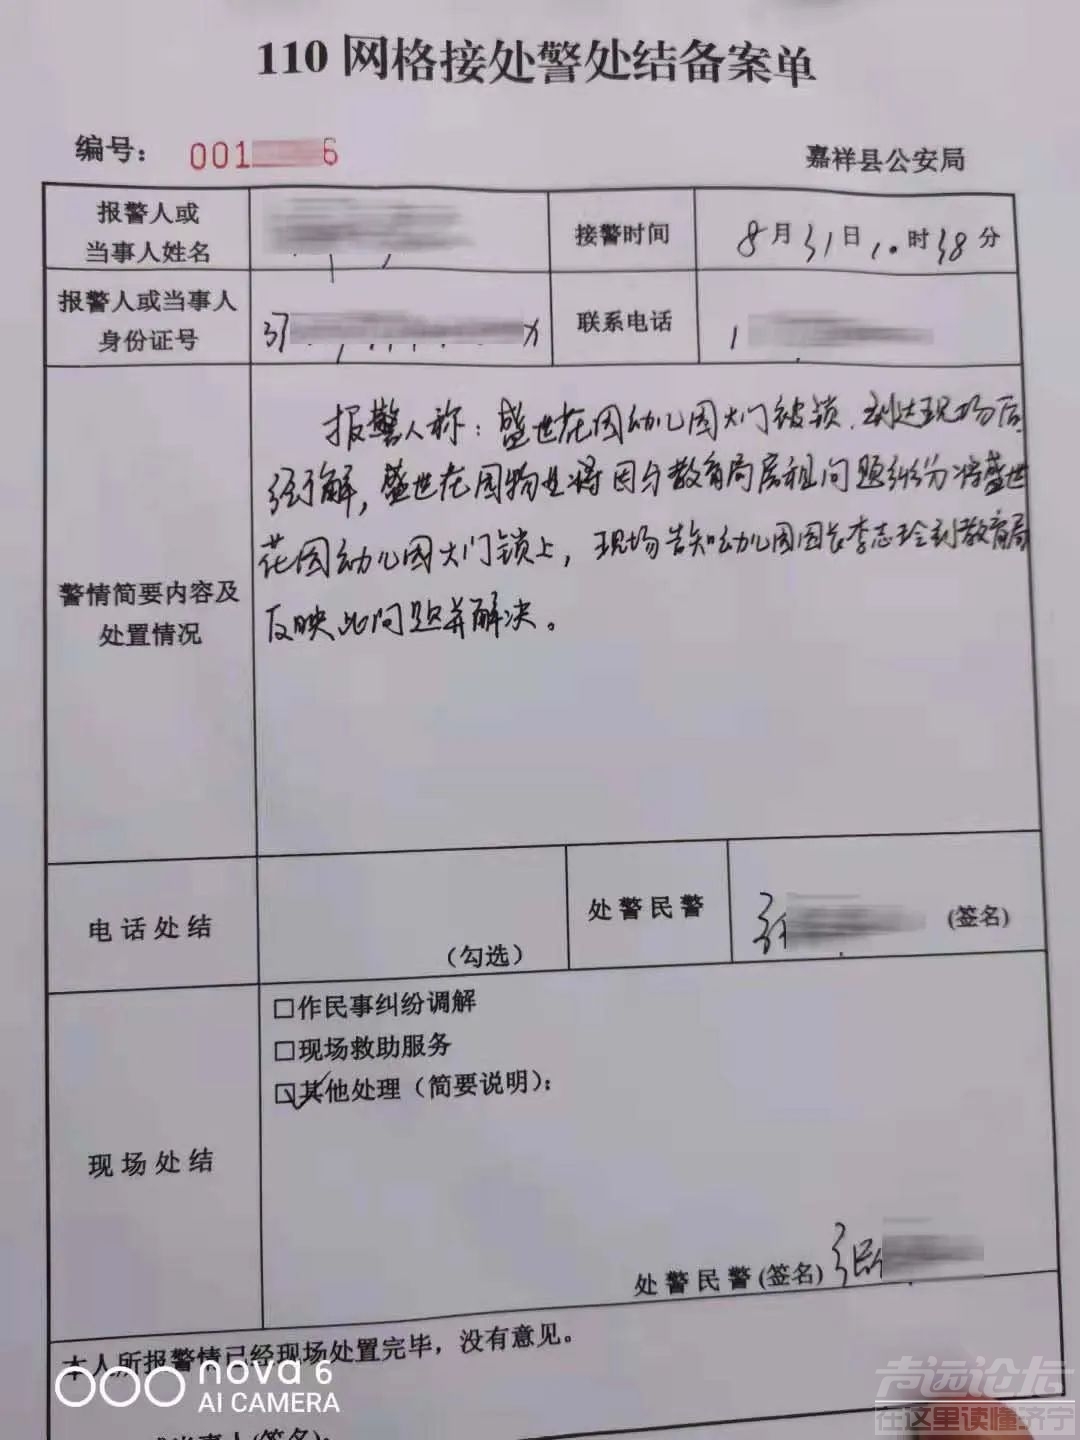 110 网格接处警处结备案单
编号： 001 6
嘉祥县公安局
报警人或
当事人姓名
接警时间
8月31日 时38分
报警人或当事人
身份证号
37 X
联系电话
1
报警人称：盛世花园幼儿园大门被锁，到达现场后
经了解，盛世花园物业将因与教育局房租问题纠纷将盛世
花园幼儿园大门锁上，现场告知幼儿园园长李志玲到教育局
反映此问题并解决。
警情简要内容及
处置情况
电话处结
（勾选）
处警民警
张 (签名)
□作民事纠纷调解
□现场救助服务
☑其他处理（简要说明）：
现场处结
处警民警(签名) 张
本人所报警情已经现场处置完毕，没有意见。
nova 6
AI CAMERA
志远论坛
在这里读懂济宁